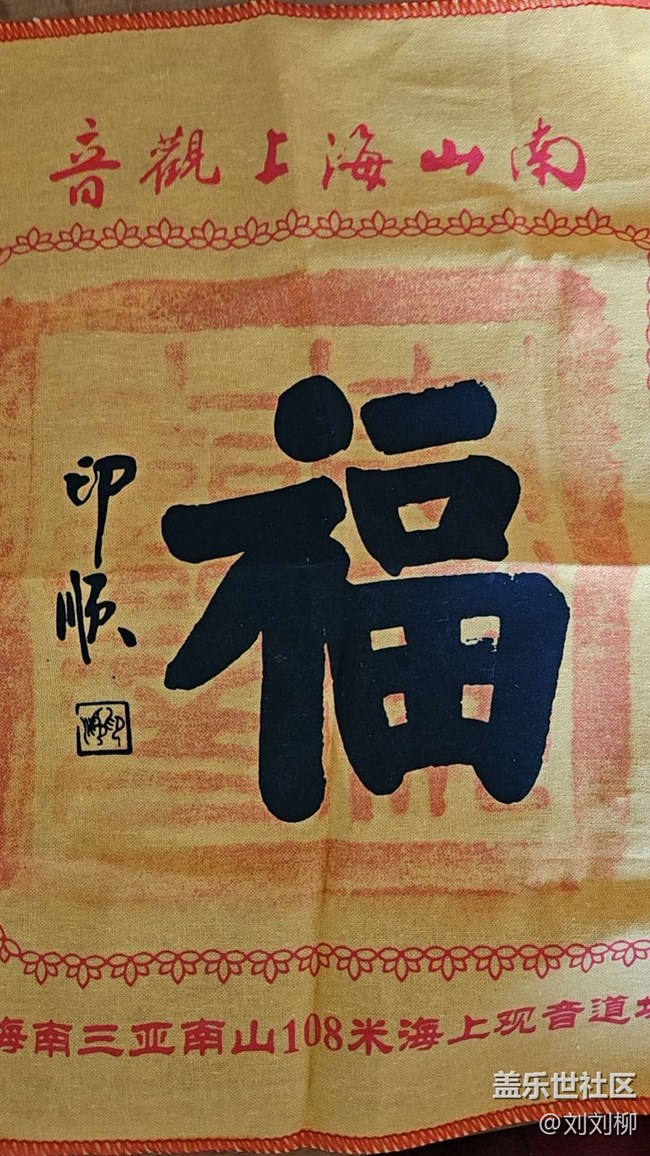 南山海上觀音
福
印顺
海南三亚南山108米海上观音道场
盖乐世社区
@刘刘柳